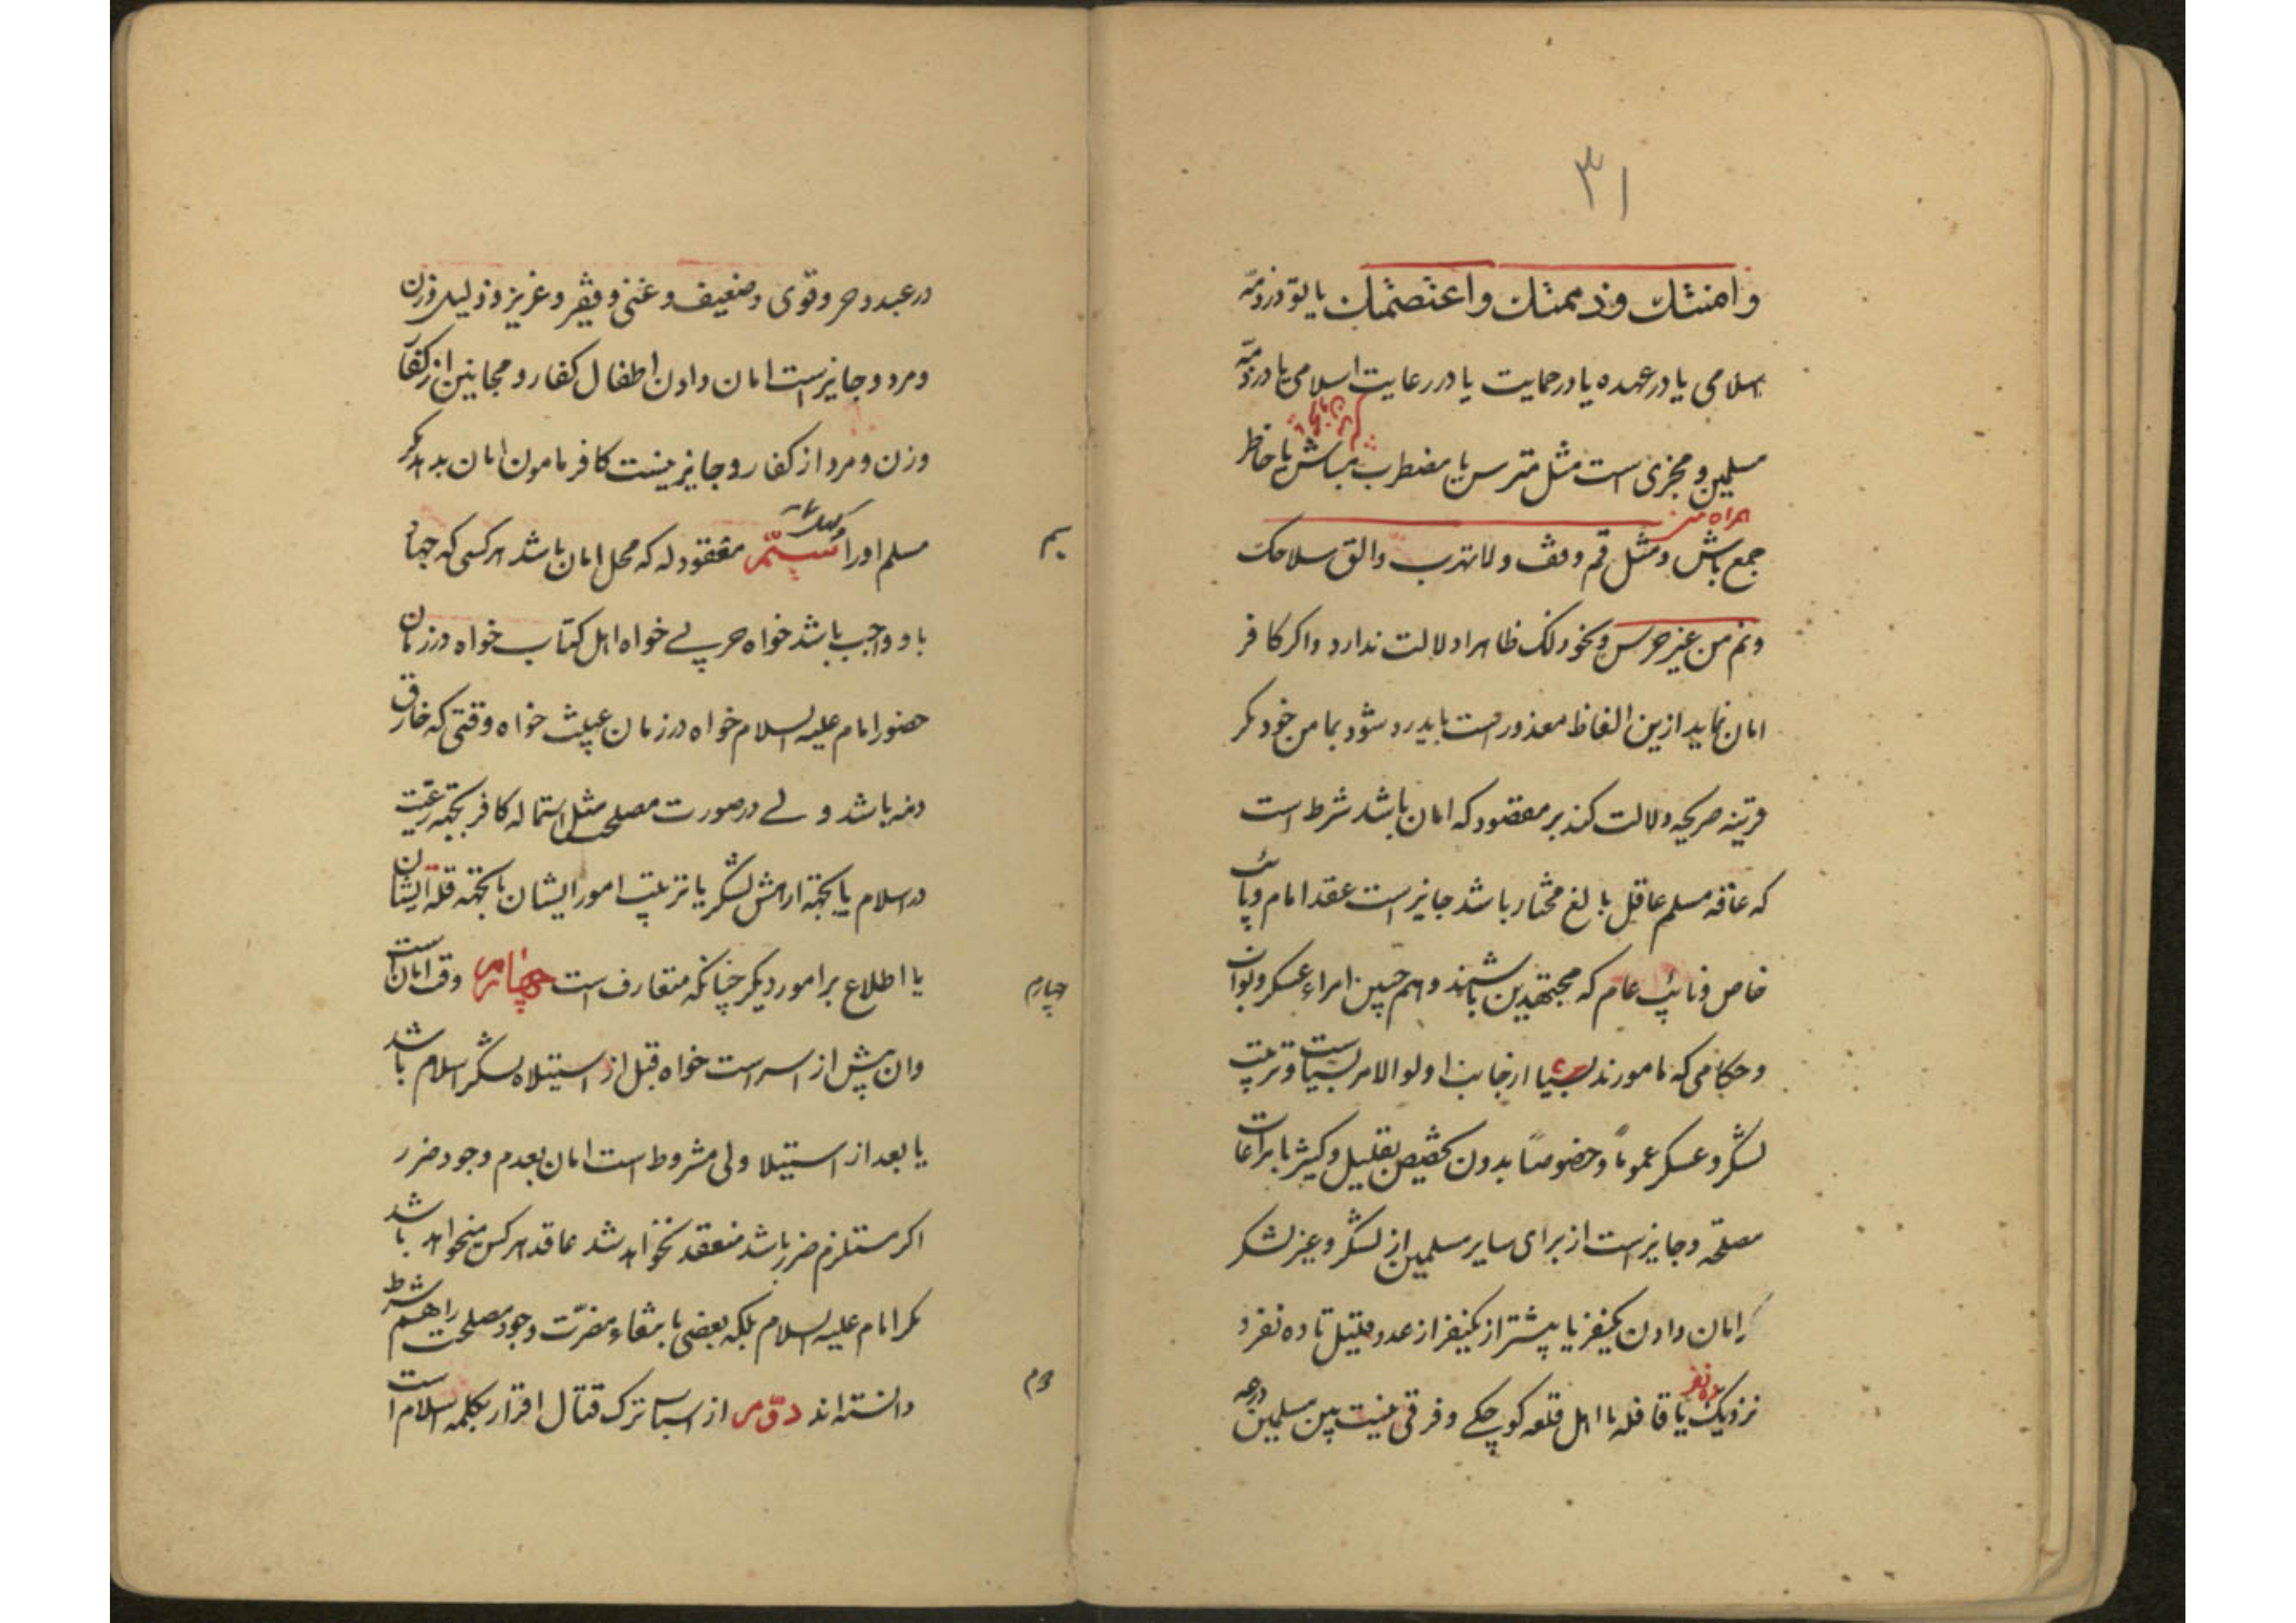 ۳۱
وامنتك وذممتك واعتصمتك یا تو در ذمهٔ
اسلامی یا در عهده یا در حمایت یا در رعایت اسلامی یا در ذمهٔ
مسلمین و مجزی است مثل مترس یا مضطرب مباش یا خاطر
همراه من
جمع باش و مثل قم وقف ولا تهرب والق سلاحک
ونم من غیر حرس ونحو ذلک ظاهرا دلالت ندارد و اکر کافر
امان نماید ازین الفاظ معذور است باید رد شود بمامن خود مکر
قرینه صریحه دلالت کند بر مقصود که امان باشد شرط است
که عاقد مسلم عاقل بالغ مختار باشد جایز است عقد امام و نائب
خاص و نائب عام که مجتهدین باشند و هم چنین امراء عسکر و نواب
و حکامی که مامورند از جانب اولو الامر بسیاست و ترتیب
لشکر و عسکر عموماً و خصوصاً بدون تخصیص بقلیل و کثیر با مراعات
مصلحة و جایز است از برای سایر مسلمین از لشکر و غیر لشکر
امان دادن یکنفر یا بیشتر از یکنفر از عدد قلیل تا ده نفر و
ده نفر
نزدیک یا قافله یا اهل قلعه کوچکے و فرقی نیست بین مسلمین
در عبد و حر و قوی و ضعیف و غنی و فقیر و عزیز و ذلیل و زن
و مرد و جایز است امان دادن اطفال کفار و مجانین از کفار
و زن و مرد از کفار و جایز نیست کافر مامون امان بدهد مکر
مسلم او را سیّم معقود له که محل امان باشد هر کسی که جهاد
سیم
با او واجب باشد خواه حربے خواه اهل کتاب خواه در زمان
حضور امام علیه السلام خواه در زمان غیبت خواه وقتی که خارق
ذمه باشد ولے در صورت مصلحت مثل استماله کافر بجهة رغبت
در اسلام یا بجهة ارامش لشکر یا ترتیب امور ایشان یا بجهة قلة ایشان
یا اطلاع بر امور دیکر چنانکه متعارف است چهارم وقت امان است
چهارم
وان پیش از اسر است خواه قبل از استیلاء لشکر اسلام باشد
یا بعد از استیلا ولی مشروط است امان بعدم وجود ضرر
اکر مستلزم ضرر باشد منعقد نخواهد شد عاقد هر کس میخواهد باشد
مکر امام علیه السلام بلکه بعضی با بقاء مضرّت وجود مصلحت را هم شرط
دانسته اند دوّم از اسباب ترک قتال اقرار بکلمه اسلام است
دوم